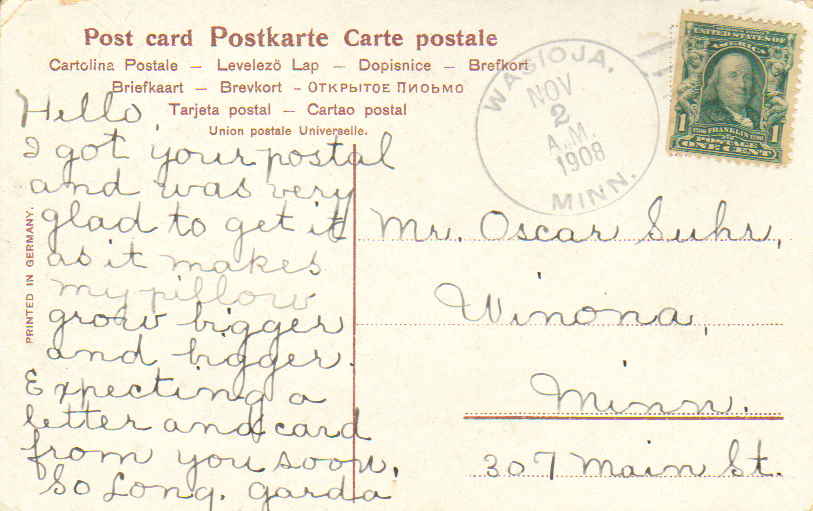 Post card Postkarte Carte postale
Cartolina Postale – Levelező Lap – Dopisnice – Brefkort
Briefkaart – Brevkort – Открытое Письмо
Tarjeta postal – Cartao postal
Union postale Universelle.
PRINTED IN GERMANY.
WASIOJA,
NOV
2
A.M.
1908
MINN.
UNITED STATES OF
AMERICA
1 FRANKLIN 1
POSTAGE
ONE CENT
Hello,
I got your postal
and was very
glad to get it
as it makes
my pillow
grow bigger
and bigger.
Expecting a
letter and card
from you soon,
So Long. Garda
Mr. Oscar Suhr,
Winona,
Minn.
307 Main St.